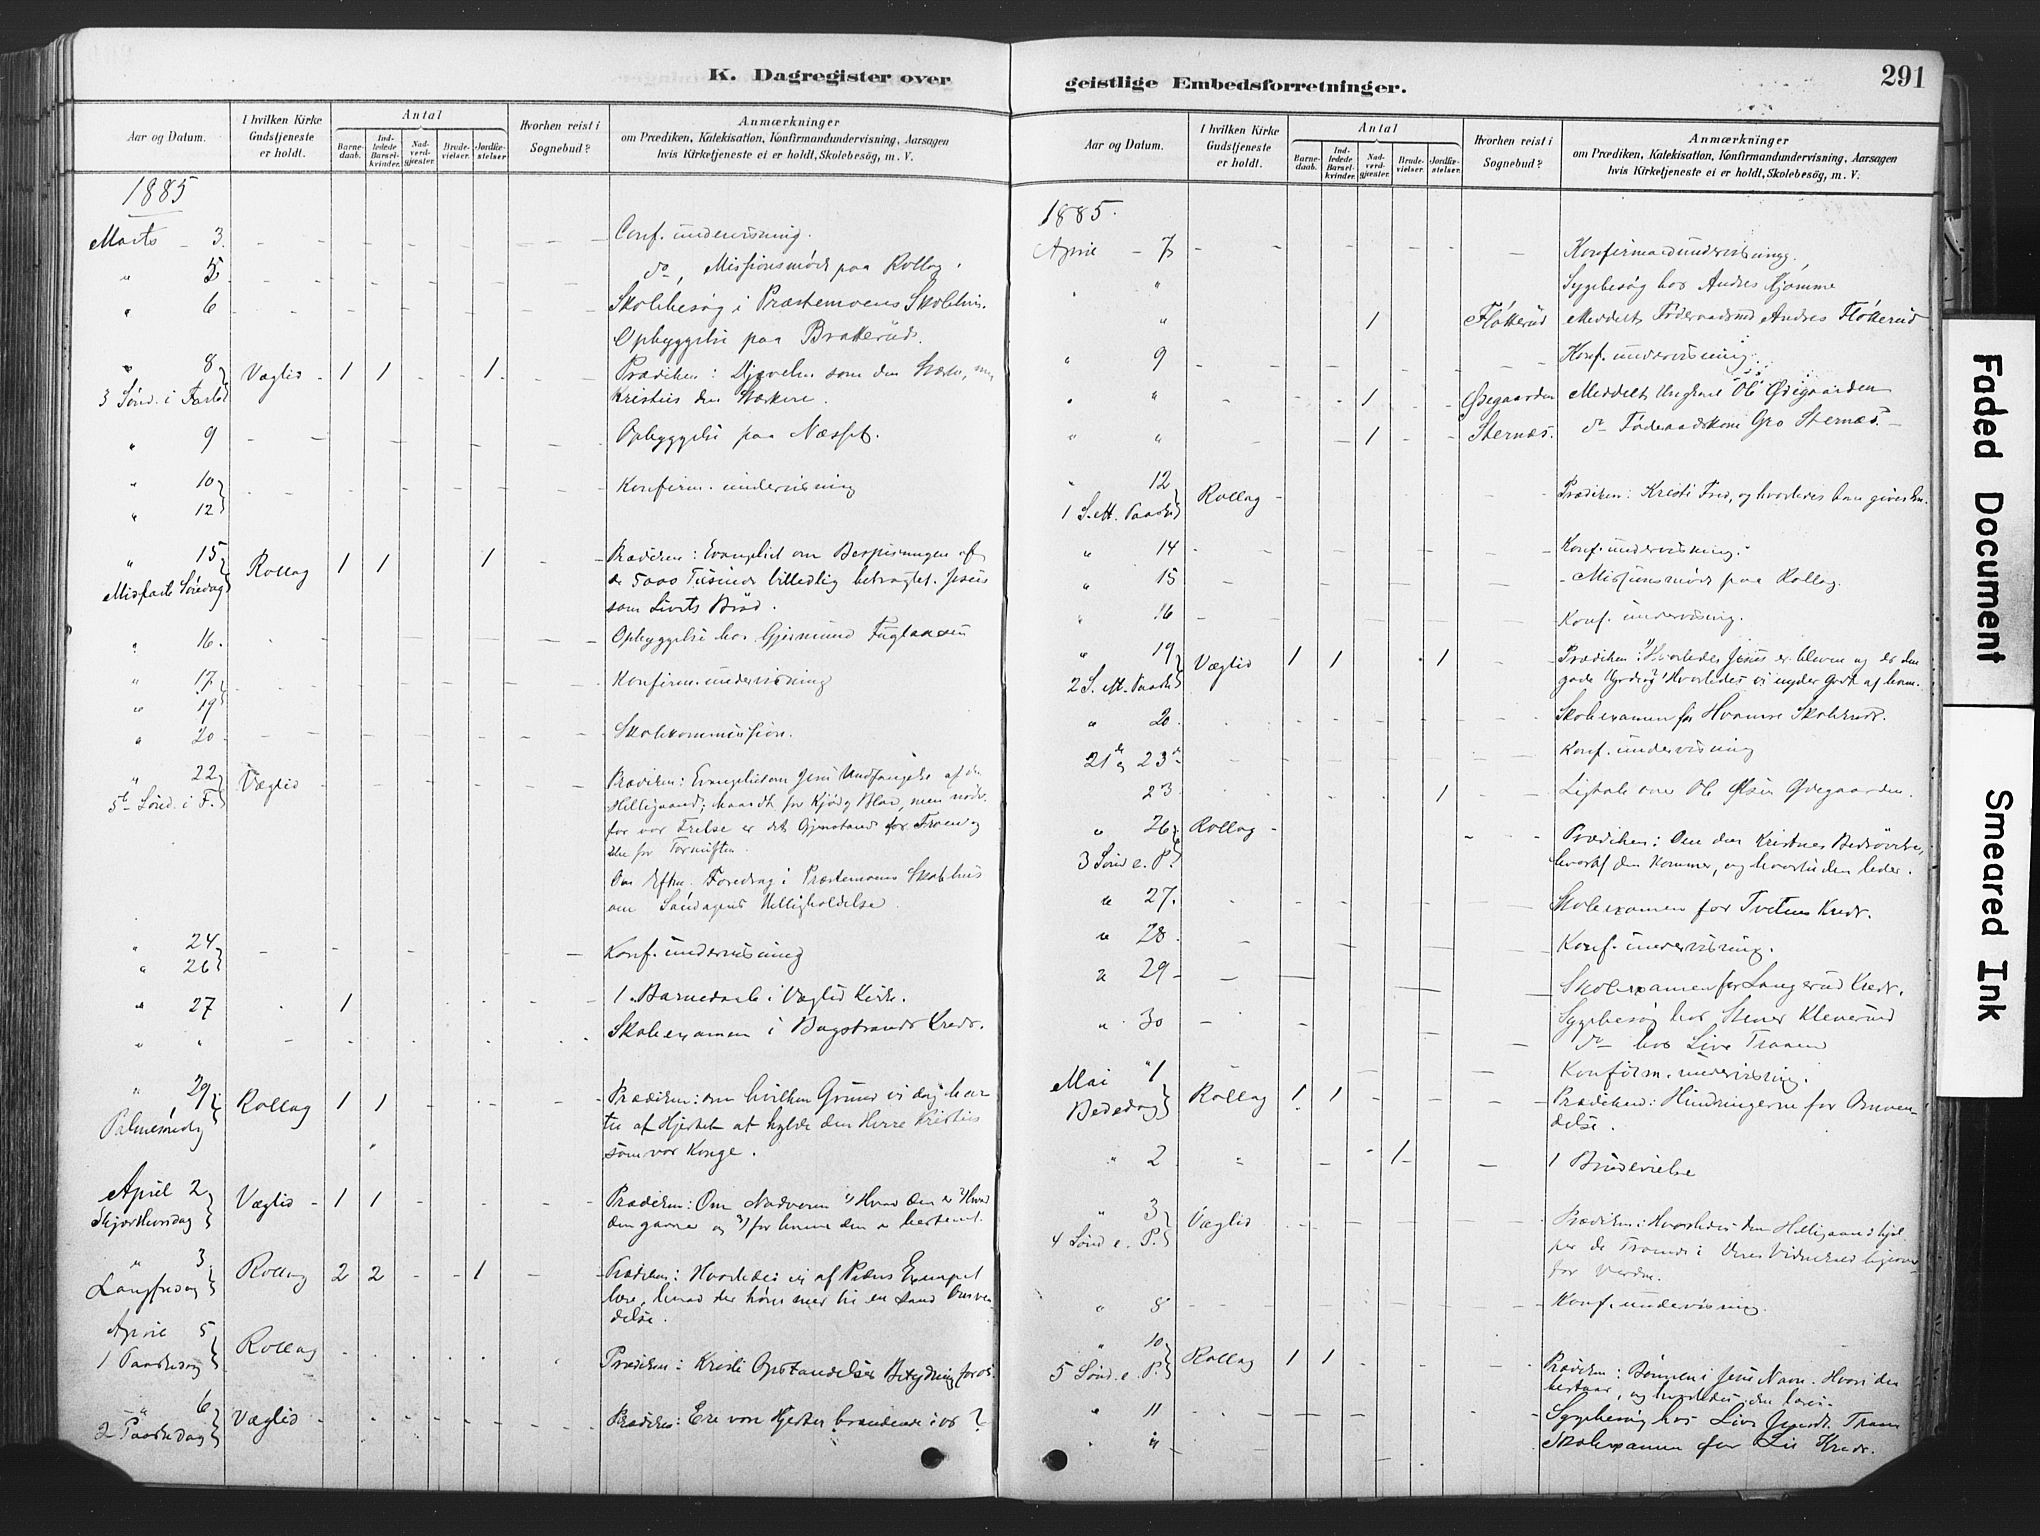 K. Dagregister over
Aar og Datum.
I hvilken Kirke Gudstjeneste er holdt.
Antal
Barnedaab.
Indledede Barselkvinder.
Nadverdgjester.
Brudevielser.
Jordfæstelser.
Hvorhen reist i Sognebud?
Anmærkninger
om Prædiken, Katekisation, Konfirmandundervisning, Aarsagen
hvis Kirketjeneste ei er holdt, Skolebesög, m. V.
1885
Marts 3. Conf. undervisning.
" 5 do, Missionsmöde paa Rollag.
" 6 Skolebesög i Præstemoens Skolehus.
Opbyggelse paa Brakerud.
" 8 Væglid 1 1 1 Prædiken: Djævelen som den Stærke, men
3 Sönd. i Faste Kristus den Stærkere.
" 9 Opbyggelse paa Næsset.
" 10 Konfirm. undervisning
" 12
" 15 Rollag 1 1 1 Prædiken: Evangeliet om Bespisningen af
Midfaste Söndag de 5000 billedlig betragtet. Jesus
som Livets Bröd.
" 16. Opbyggelse hos Gjermund
" 17 Konfirm. undervisning
" 19
" 20 Skolekommission.
" 22 Væglid Prædiken: Evangeliet om Jesu Undfangelse af den
5te Sönd. i F. Helligaand; haardt for Kjöd og Blod, men nödv.
for vor Frelse er det Gjenstand for Troen og
ikke for Fornuften.
Om Eftm. Foredrag i Præstemoens Skolehus
om Söndagens Helligholdelse.
" 24 Konf. undervisning
" 26
" 27 1 1 Barnedaab i Væglid Kirke.
" " Skoleexamen i Bagstrands Kreds.
" 29 Rollag 1 1 Prædiken: om hvilken Grund vi dog har
Palmesöndag til af Hjertet at hylde den Herre Kristus
som vor Konge.
April 2 Væglid 1 1 Prædiken: Om Nadveren 1) Hvad den er 2) Hvad
Skjærthorsdag den gavner og 3) for hvem den er bestemt.
" 3 Rollag 2 2 1 Prædiken: Hvorledes vi af Peders Exempel
Langfredag lære, hvad der hörer med til en sand Omven-
delse.
April 5 Rollag
1 Paaskedag Prædiken: Kristi Opstandelses Betydning for os.
" 6 Væglid Prædiken: Ere vore Hjerter brændende i os?
2 Paaskedag
geistlige Embedsforretninger.
291
Aar og Datum.
I hvilken Kirke Gudstjeneste er holdt.
Antal
Barnedaab.
Indledede Barselkvinder.
Nadverdgjester.
Brudevielser.
Jordfæstelser.
Hvorhen reist i Sognebud?
Anmærkninger
om Prædiken, Katekisation, Konfirmandundervisning, Aarsagen
hvis Kirketjeneste ei er holdt, Skolebesög, m. V.
1885.
April 7 Konfirmandundervisning.
" " Sygebesög hos Andres Hjomme
" 1 Flötterud Meddelt Föderaadsmd Andres Flötterud
" 9 Konf. undervisning.
" " 1 Ödegaarden Meddelt Ungkarl Ole Ödegaarden
" " 1 Sternæs. do Föderaadskone Gro Sternæs.
" 12 Rollag Prædiken: Kristi Fred, og hvorledes han giver den.
1 S. eft. Paaske
" 14 Konf. undervisning.
" 15 Missionsmöde paa Rollag.
" 16 Konf. undervisning.
" 19 Væglid 1 1 1 Prædiken: 1) Hvorledes Jesus er bleven og er den
2 S. eft. Paaske gode Hyrde, 2) Hvorledes vi nyder godt af ham.
" 20 Skoleexamen for Hvamse Skolekreds.
21de og 23de Konf. undervisning
23 1 Ligtale over Ole Olsen Ödegaarden.
" 26 Rollag Prædiken: Om den Kristnes Bedrövelse,
3 Sönd e. P. hvoraf den kommer, og hvortil den leder.
" 27. Skoleexamen for Tveitens Kreds.
" 28 Konf. undervisning.
" 29 Skoleexamen for Langerud Kreds.
" 30 Sygebesög hos Stener Kleverud
do hos Live Traaen
Mai 1 Konfirm. undervisning.
Bededag Rollag 1 1 Prædiken: Hindringerne for Omven-
delse.
" 2 1 1 Brudevielse
" 3 Væglid Prædiken: Hvorledes den Helligaand hjæl-
4 Sönd e. P. per de Troende i deres Vidnesbyrd ligeover-
for Verden.
" 8 Konf. undervisning.
" 10 Rollag 1 1 Prædiken: Bönnen i Jesu Navn. Hvori den
5 Sönd. e. P. bestaar, og hvorledes den
" 11 Sygebesög hos Live Traaen
" " Skoleexamen for Lie Kreds.
Faded Document
Smeared Ink